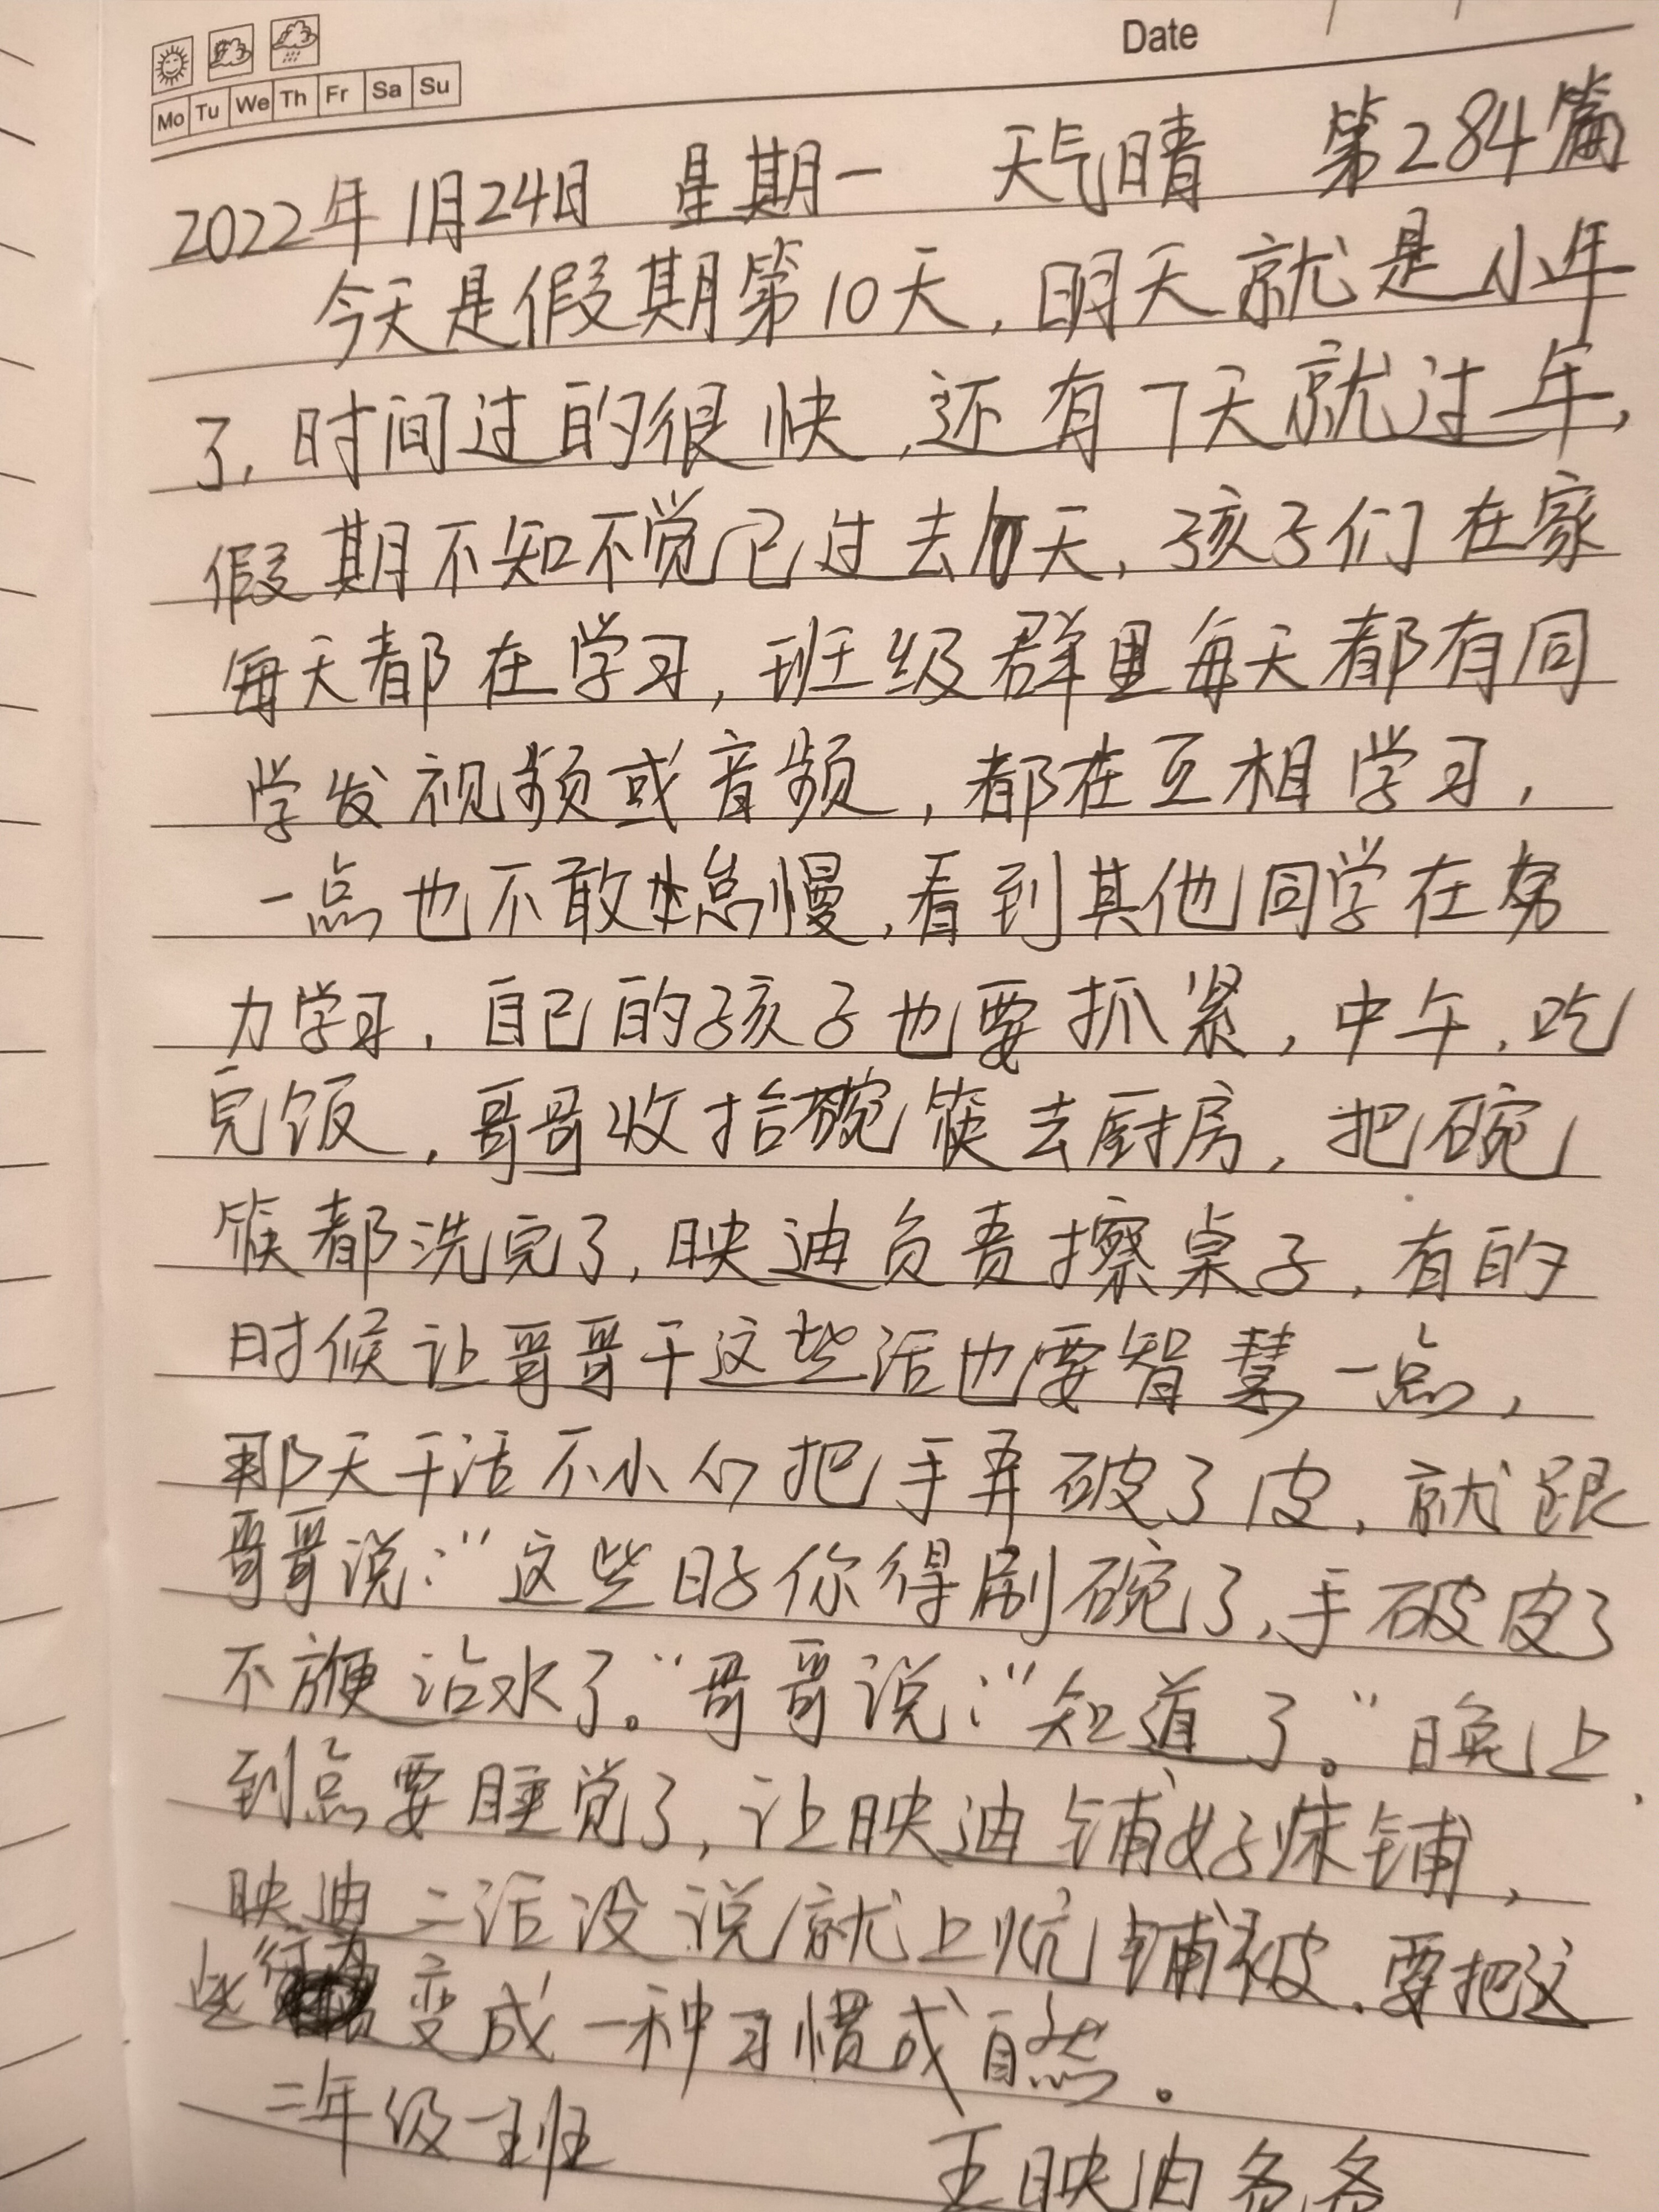 Date
Mo Tu We Th Fr Sa Su
2022年1月24日 星期一 天气晴 第284篇
今天是假期第10天,明天就是小年
了,时间过的很快,还有7天就过年,
假期不知不觉已过去10天,孩子们在家
每天都在学习,班级群里每天都有同
学发视频或音频,都在互相学习,
一点也不敢怠慢,看到其他同学在努
力学习,自己的孩子也要抓紧,中午,吃
完饭,哥哥收拾碗筷去厨房,把碗
筷都洗完了,映迪负责擦桌子,有的
时候让哥哥干这些活也要智慧一点,
那天干活不小心把手弄破了皮,就跟
哥哥说:“这些日子你得刷碗了,手破皮了
不方便沾水了。”哥哥说:“知道了。”晚上
到点要睡觉了,让映迪铺好床铺,
映迪二话没说就上炕铺被.要把这
些行为变成一种习惯成自然。
二年级一班
王映迪爸爸